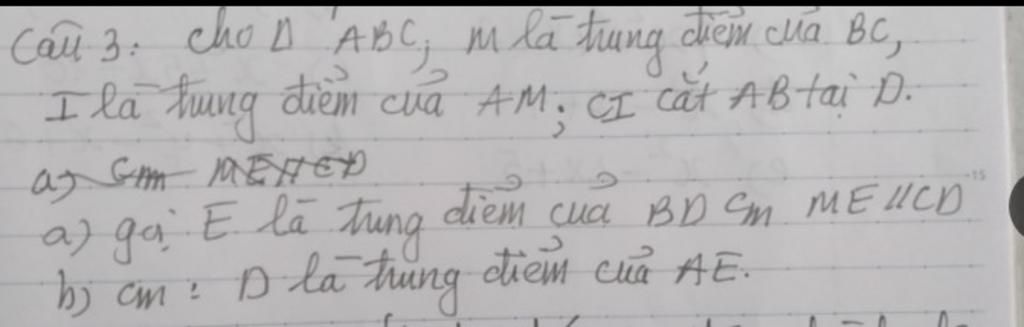 Câu 3: Cho Δ ABC, M là trung điểm của BC,
I là trung điểm của AM; CI cắt AB tại D.
a) Cm ME//CD
a) gọi E là trung điểm của BD Cm ME//CD
b) cm: D là trung điểm của AE.